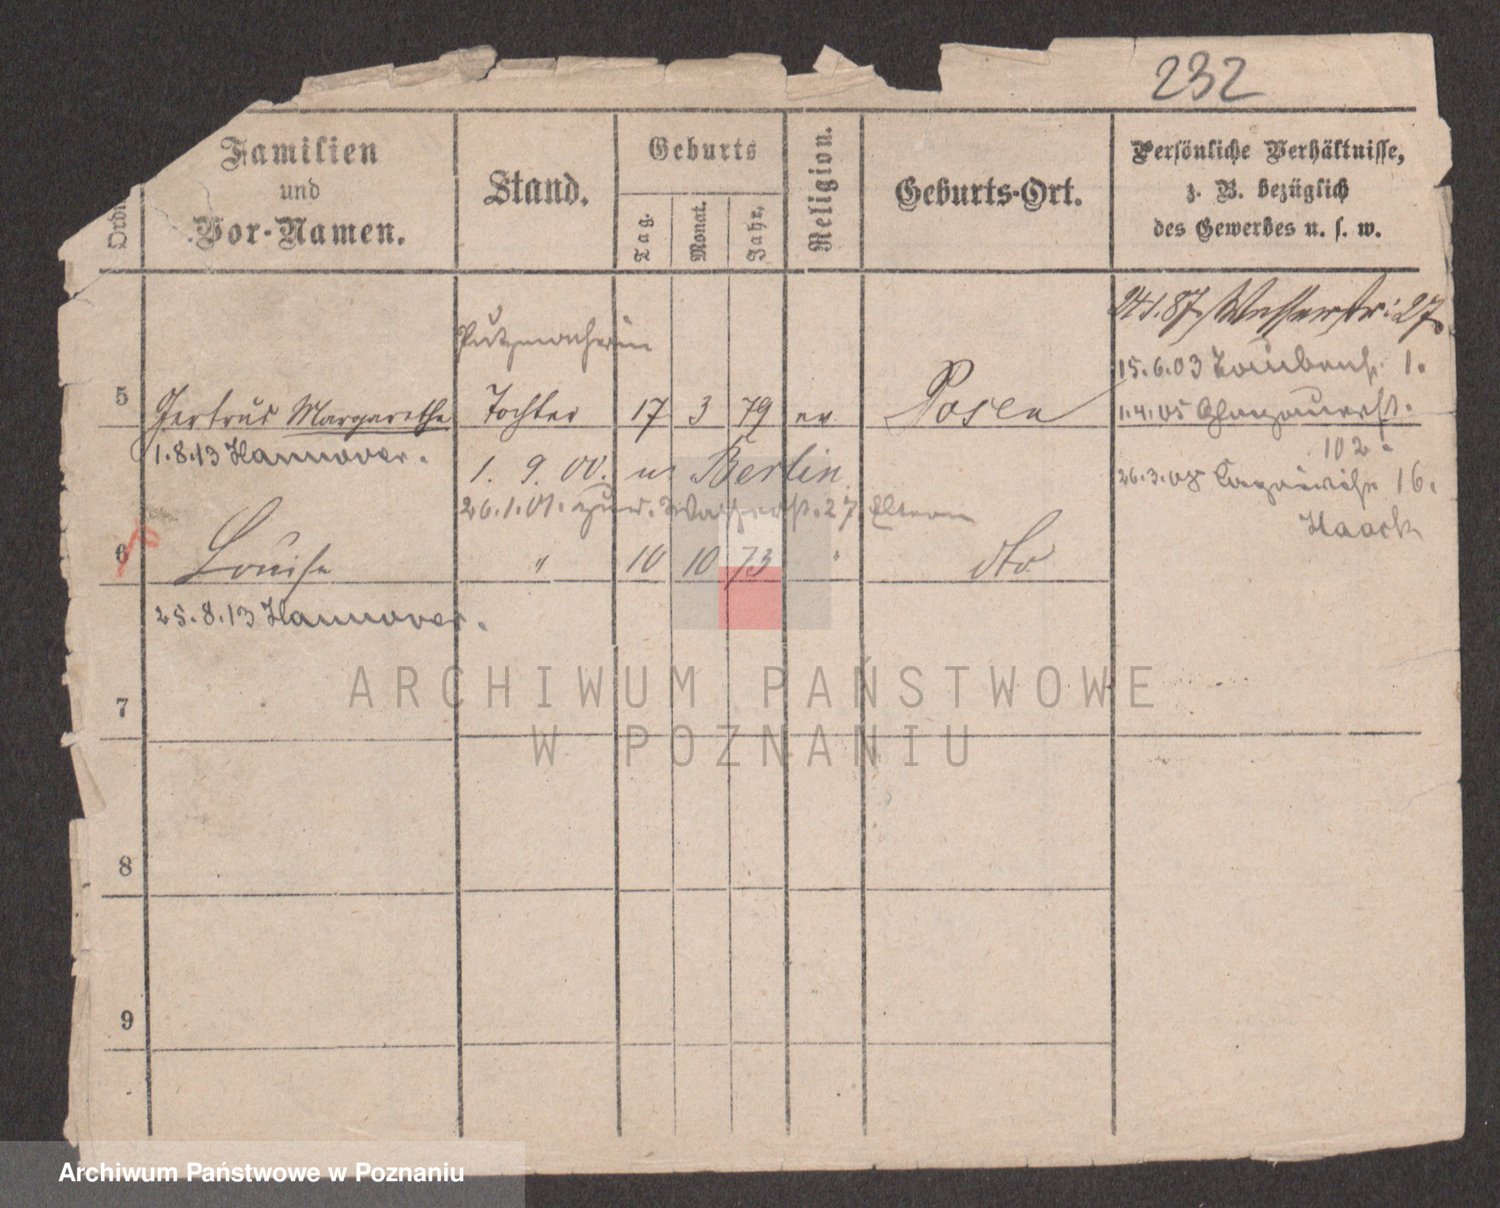 232
Familien
und
Vor-Namen.
Stand.
Geburts
Tag.
Monat.
Jahr.
Religion.
Geburts-Ort.
Persönliche Verhältnisse,
z. B. bezüglich
des Gewerbes u. s. w.
24.1.87 Wasserstr: 27
Putzmacherin
15.6.03 Taubenst. 1.
5 Gertrud Margarethe Tochter 17 3 79 ev Posen
1.4.05
102.
1.8.13 Hannover.
1. 9. 00. n. Berlin
26.3.08 16.
26.1.01. zur. Wasserst. 27. Eltern
Haack
6 Louise " 10 10 73 " dto
25.8.13 Hannover.
7
8
9
ARCHIWUM PAŃSTWOWE
W POZNANIU
Archiwum Państwowe w Poznaniu